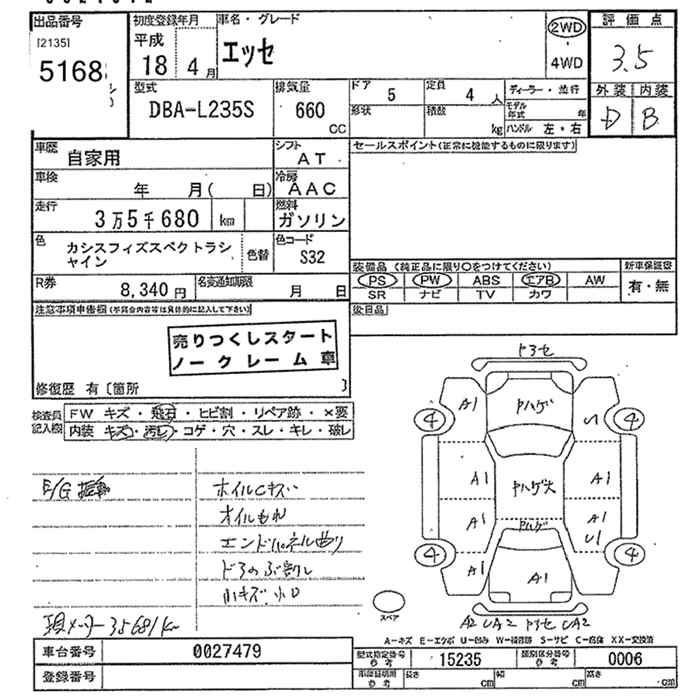 出品番号
[2135]
5168
初度登録年月
平成
18年 4月
車名・グレード
エッセ
2WD
4WD
評価点
3.5
外装 内装
D B
型式
DBA-L235S
排気量
660
CC
ドア 5
定員 4 人
形状
積数 kg
ディーラー・並行
モデル年式 年
ハンドル 左・右
車歴 自家用
シフト AT
セールスポイント(正常に機能するものに限ります)
車検 年 月( 日)
冷房 AAC
走行 3万5千680 km
燃料 ガソリン
色 カシスフィズスペクトラシャイン
色替
色コード S32
装備品(純正品に限り○をつけてください)
PS PW ABS エアB AW
SR ナビ TV カワ
新車保証書
有・無
R券 8,340円
名変通知期限 月 日
後日品
注意事項申告欄(不具合内容等は具体的に記入して下さい)
売りつくしスタート
ノークレーム車
修復歴 有〔箇所 〕
検査員記入欄
FW キズ・飛石・ヒビ割・リペア跡・×要
内装 キズ・汚レ・コゲ・穴・スレ・キレ・破レ
E/G
ホイルCキズ
オイルもれ
エンドパネル曲り
ドアのぶ割レ
小キズ 小凹
現メーター35681km
ドアセ
A1
ヤハゲ
4
4
A1
ヤハゲ大
A1
A1
ヤハゲ
A1
U1
4
4
A1
A1
スペア
A2 UA2 ドアセ UA2
A-キズ E-エクボ U-凹み W-補修跡 S-サビ C-腐食 XX-交換済
車台番号 0027479
型式指定番号 参考 15235
類別区分番号 参考 0006
登録番号
車庫証明用 参考
長さ cm
幅 cm
高さ cm